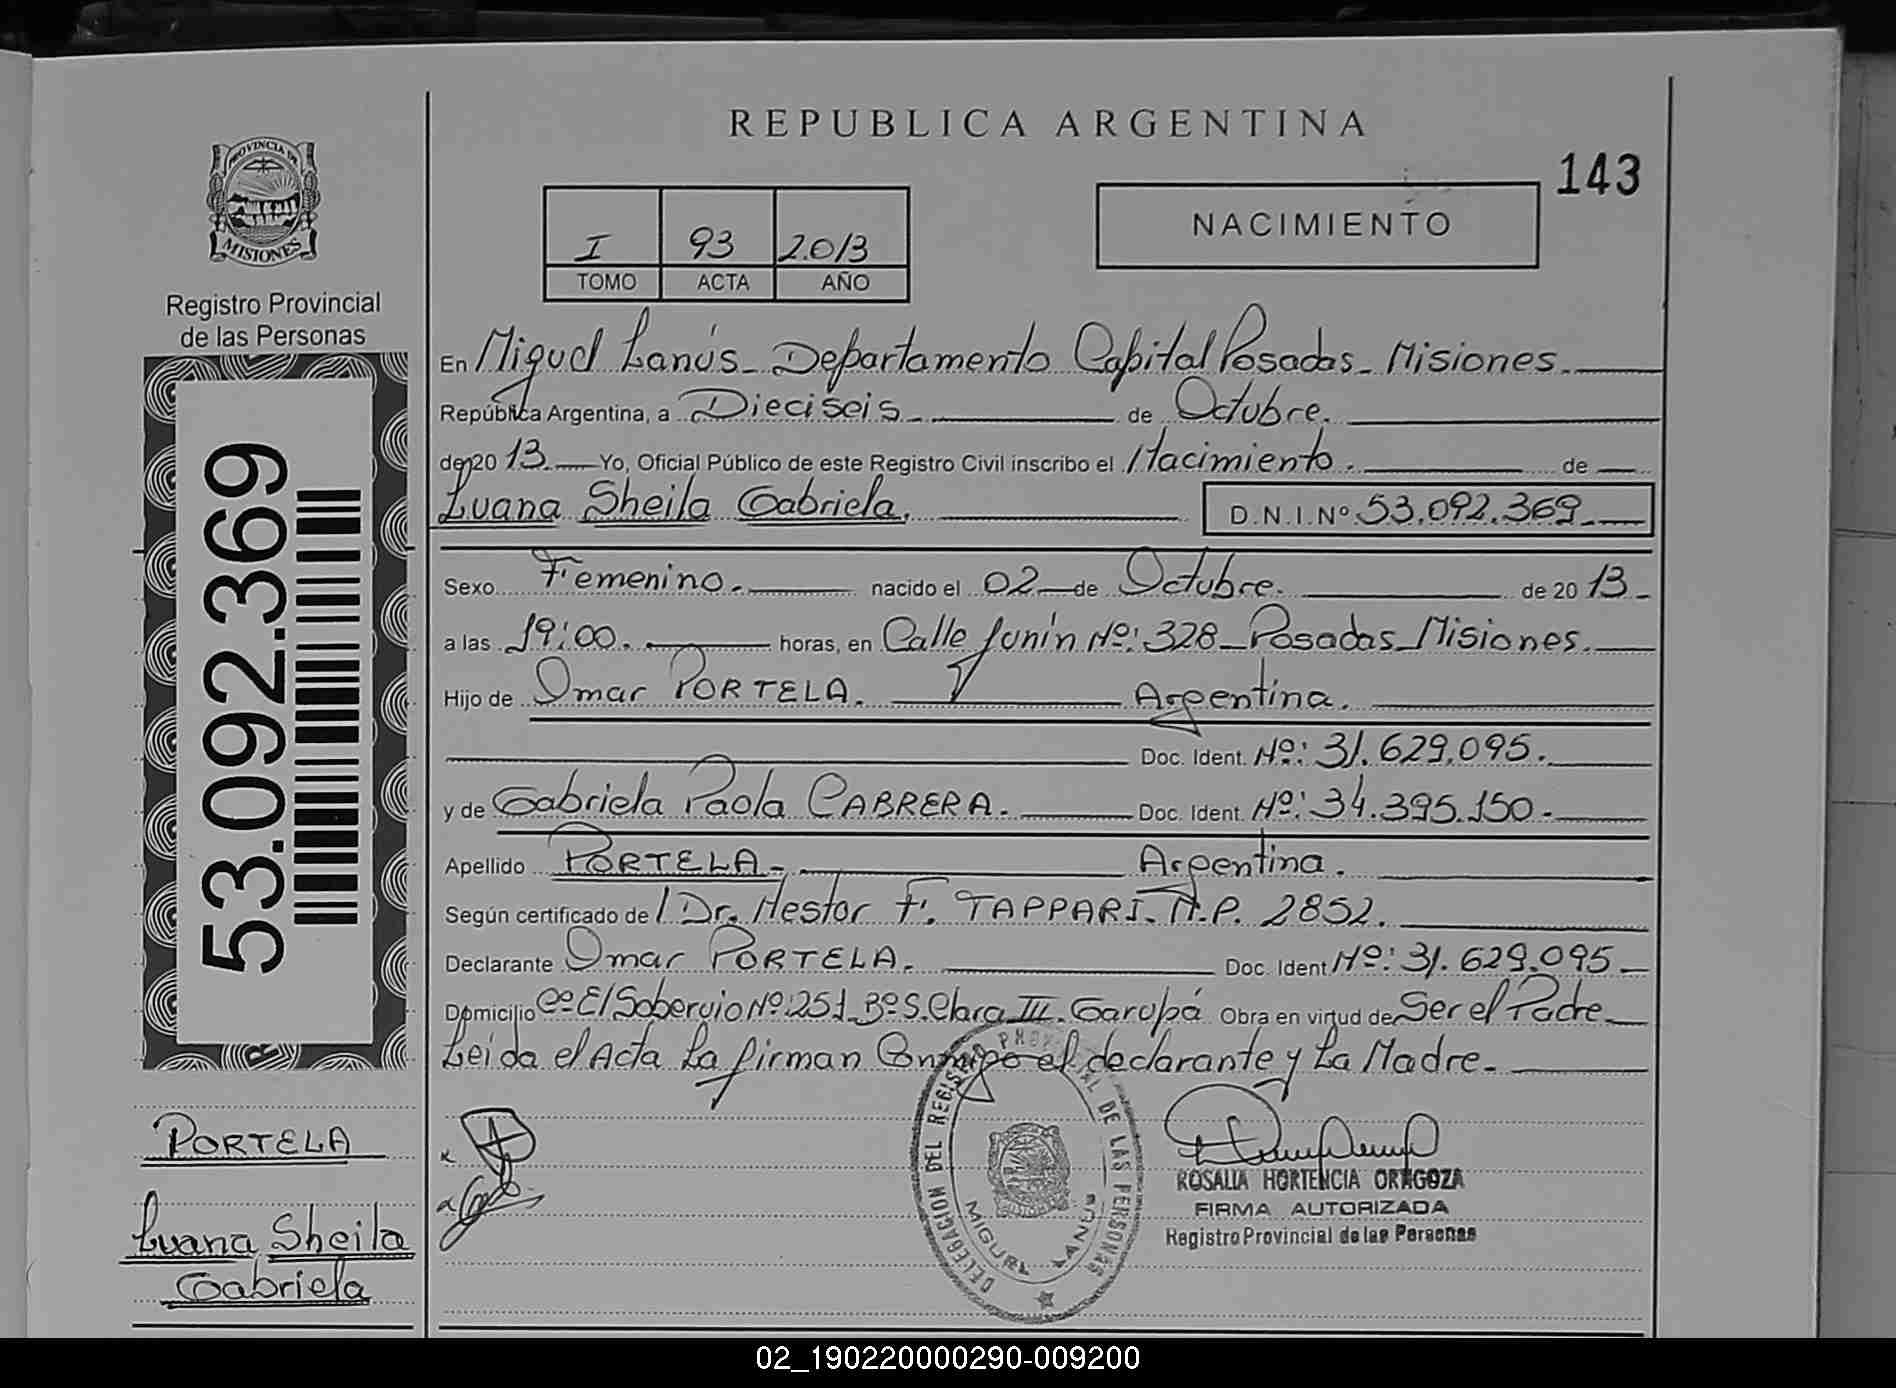 REPUBLICA ARGENTINA
143
PROVINCIA DE
MISIONES
Registro Provincial
de las Personas
53.092.369
PORTELA
Luana Sheila
Gabriela
I 93 2.013
TOMO ACTA AÑO
NACIMIENTO
En Miguel Lanús_ Departamento Capital Posadas_ Misiones.
República Argentina, a Dieciseis de Octubre.
de 20 13. Yo, Oficial Público de este Registro Civil inscribo el Nacimiento. de
Luana Sheila Gabriela. D.N.I.Nº 53.092.369
Sexo Femenino. nacido el 02 de Octubre. de 20 13
a las 19:00. horas, en Calle Junín Nº: 328_ Posadas_Misiones.
Hijo de Omar PORTELA. Argentina.
Doc. Ident. Nº: 31.629.095.
y de Gabriela Paola CABRERA. Doc. Ident. Nº: 34.395.150.
Apellido PORTELA. Argentina.
Según certificado de Dr. Nestor F. TAPPARI. M.P. 2852.
Declarante Omar PORTELA. Doc. Ident Nº: 31.629.095
Domicilio Cº El Sobervio Nº: 251_ Bº S. Clara III. Garupá Obra en virtud de Ser el Padre
Leida el Acta La firman Conmigo el declarante y La Madre.
DELEGACION DEL REGISTRO PROVINCIAL DE LAS PERSONAS
MIGUEL LANUS
ROSALIA HORTENCIA ORAGOZA
FIRMA AUTORIZADA
Registro Provincial de las Personas
02_190220000290-009200